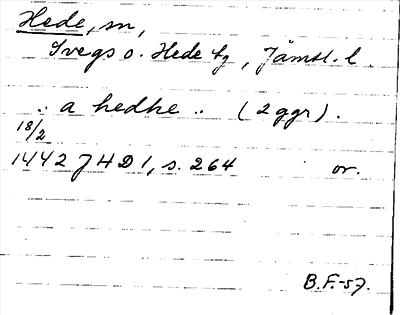 Hede, sn,
Svegs o. Hede tg, Jämtl. l.
.. a hedhe .. (2 ggr).
18/2
1442 JHD 1, s. 264 or.
B.F.-57.